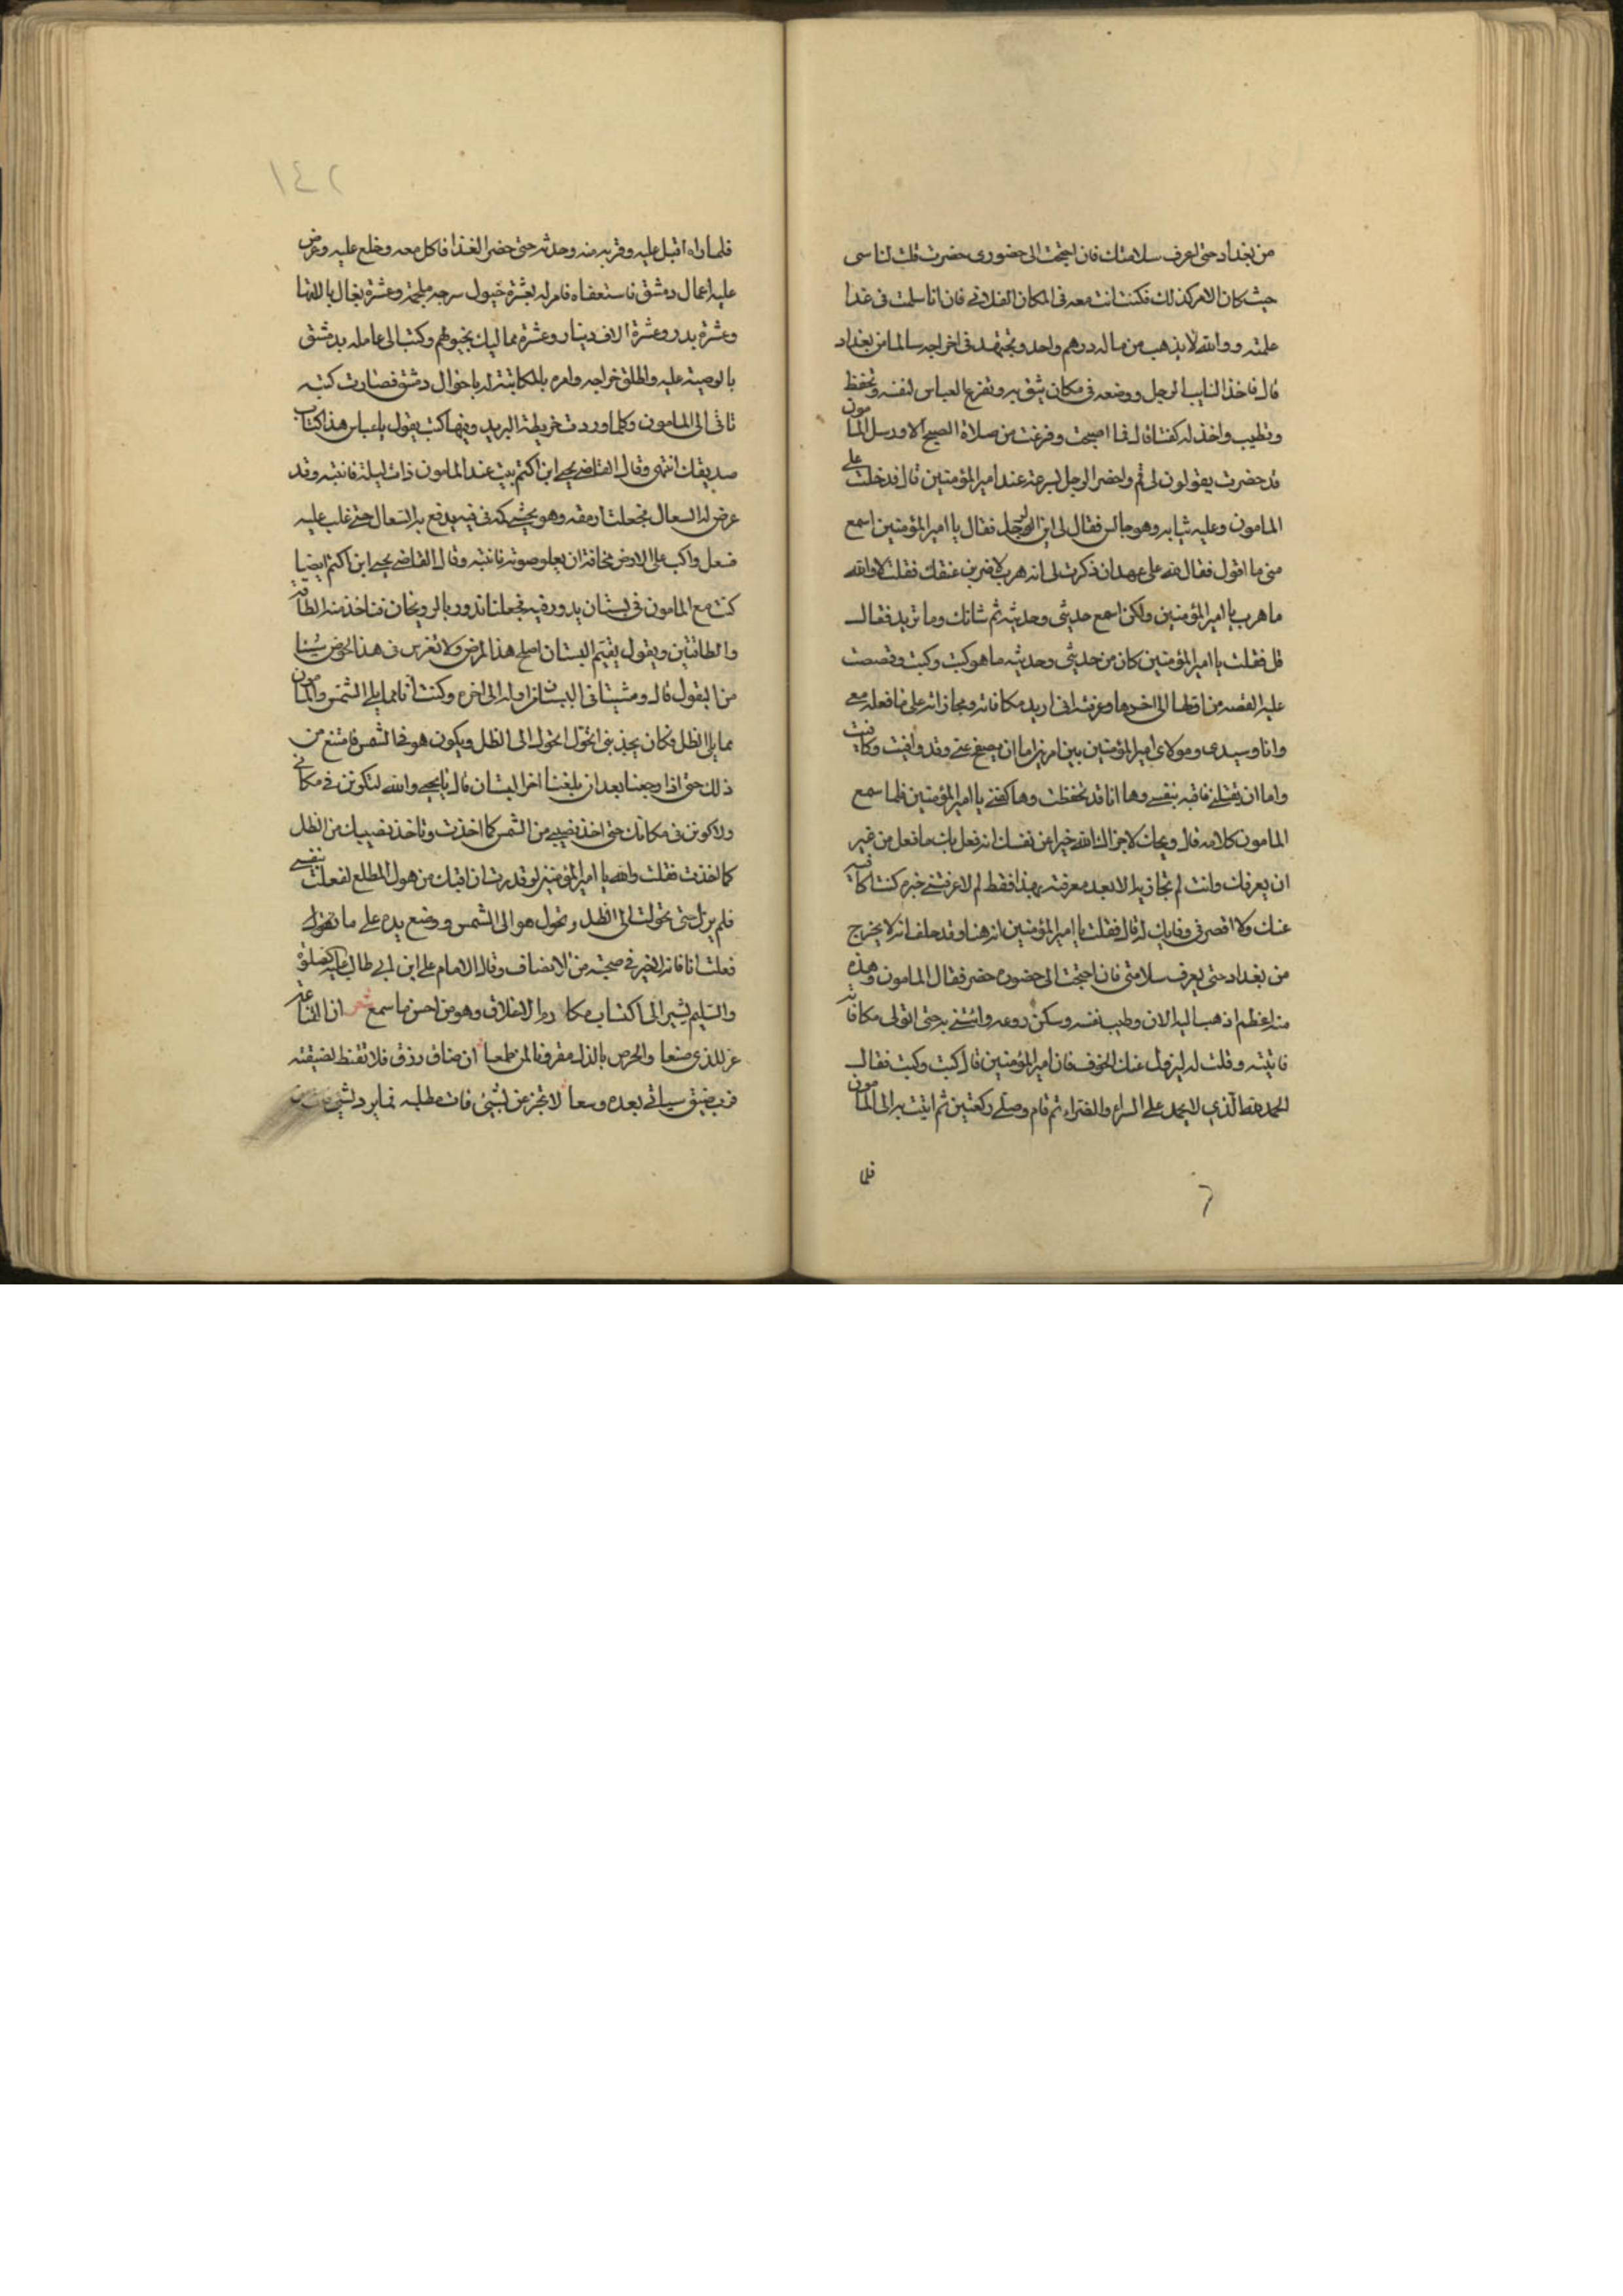 من بغداد حتى اعرف سلامتك فان احتجت الى حضورى حضرت قلت لناسى
حيث كان الامر كذلك فكنت انت معه فى المكان الفلانى فان انا سلمت فى غدا
علمته ووالله لا يذهب من ماله درهم واحد وتجتهد فى اخراجه سالما من بغداد
قال فاخذ النايب الرجل ووضعه فى مكان يثق به وتفرغ العباس لنفسه وتحفظ
وتطيب واخذ له كفنا قال فما اصبحت وفرغت من صلاة الصبح الا ورسل المامون
قد حضرت يقولون لى قم واحضر الرجل بسرعة عند امير المؤمنين قال فدخلت على
المامون وعليه ثيابه وهو جالس فقال لى اين الرجل فقال يا امير المؤمنين اسمع
منى ما اقول فقال لله على عهد ان ذكرت لى انه هرب لاضربن عنقك فقلت لا والله
ما هرب يا امير المؤمنين ولكن اسمع حديثى وحديثه ثم شانك وما تريد فقال
قل فقلت يا امير المؤمنين كان من حديثى وحديثه ما هو كيت وكيت وقصصت
عليه القصه من اولها الى اخرها وعرفته انى اريد مكافاته ومجازاته على ما فعله معى
وانا وسيدى ومولاى امير المؤمنين بين امرين اما ان يصفح عنى وقد وافيت وكافيت
واما ان يقتلنى فاقيه بنفسى وها انا قد تحفظت وها كفنى يا امير المؤمنين فلما سمع
المامون كلامه قال ويحك لا جزاك الله خيرا عن نفسك انه فعل بك ما فعل من غير
ان يعرفك وانت لم تجازيه الا بعد معرفته بهذا فقط لم لا عرفتنى خبره كنت اكافيه
عنك ولا اقصر فى وفايك له قال فقلت يا امير المؤمنين انه هنا وقد حلف انه لا يخرج
من بغداد حتى يعرف سلامتى فان احتجت الى حضوره حضر فقال المامون وهذه
منه اعظم اذهب اليه الان وطيب نفسه وسكن روعه وائتنى به حتى اتولى مكافاته
فاتيته وقلت له ليزول عنك الخوف فان امير المؤمنين قال كيت وكيت فقال
الحمد لله الذي لا يحمد على السراء والضراء ثم قام وصلى ركعتين ثم اتيت به الى المامون
فلما
٦
١٤٢
فلما راه اقبل عليه وقربه منه وحدثه حتى حضر الغذا فاكل معه وخلع عليه وعرض
عليه اعمال دمشق فاستعفاه فامر له بعشرة خيول سرجه ملجمة وعشرة بغال بالاتها
وعشرة بدر وعشرة الاف دينار وعشرة مماليك بخيولهم وكتب الى عامله بدمشق
بالوصية عليه واطلق خراجه وامره بالمكاتبة له باحوال دمشق فصارت كتبه
تاتى الى المامون وكلما وردت خريطة البريد وفيها كتب يقول يا عباس هذا كتاب
صديقك انتهى وقال القاضى يحيى ابن اكثم بيت عند المامون ذات ليلة فانتبه وقد
عرض له السعال فجعلت ارمقه وهو يحشى كمه فى فيه يدفع به السعال حتى غلب عليه
فسعل واكب على الارض مخافة ان يعلو صوته فانتبه وقال القاضى يحيى ابن اكثم ايضا
كنت مع المامون فى بستان يدور فيه فجعلنا ندور بالريحان فناخذ منه الطاقة
والطاقتين ويقول لقيم البستان اصلح هذا المرض ولا تغرس فى هذا الحوض شيئا
من البقول قال ومشينا فى البستان من اوله الى اخره وكنت انا مما يلى الشمس والمامون
مما يلى الظل فكان يجذبنى اتحول الى الظل ويكون هو فى الشمس فامتنع من
ذلك حتى اذا رجعنا بعد ان بلغنا اخر البستان قال يا يحيى والله لتكونن فى مكانى
ولاكونن فى مكانك حتى اخذ نصيبى من الشمس كما اخذت وتاخذ نصيبك من الظل
كما اخذت فقلت والله يا امير المؤمنين لو قدرت ان اقيك من هول المطلع لفعلت بنفسى
فلم يزل حتى تحولت الى الظل وتحول هو الى الشمس ووضع يده على
فعلت انا فانه لا خير فى صحبة من لا انصاف وقال الامام على ابن ابى طالب عليه الصلوة
والتسليم يشير الى اكتساب مكارم الاخلاق وهو من احسن ما سمع شعر ان القناعة
عز للذى صنعا والحرص بالذل مقرونا لمن طمعا ان ضاق رزق فلا تقنط لضيقته
فرب ضيق سياتى بعده وسعا لا تجزعن لشيئ فات مطلبه فما يرد لشيئ